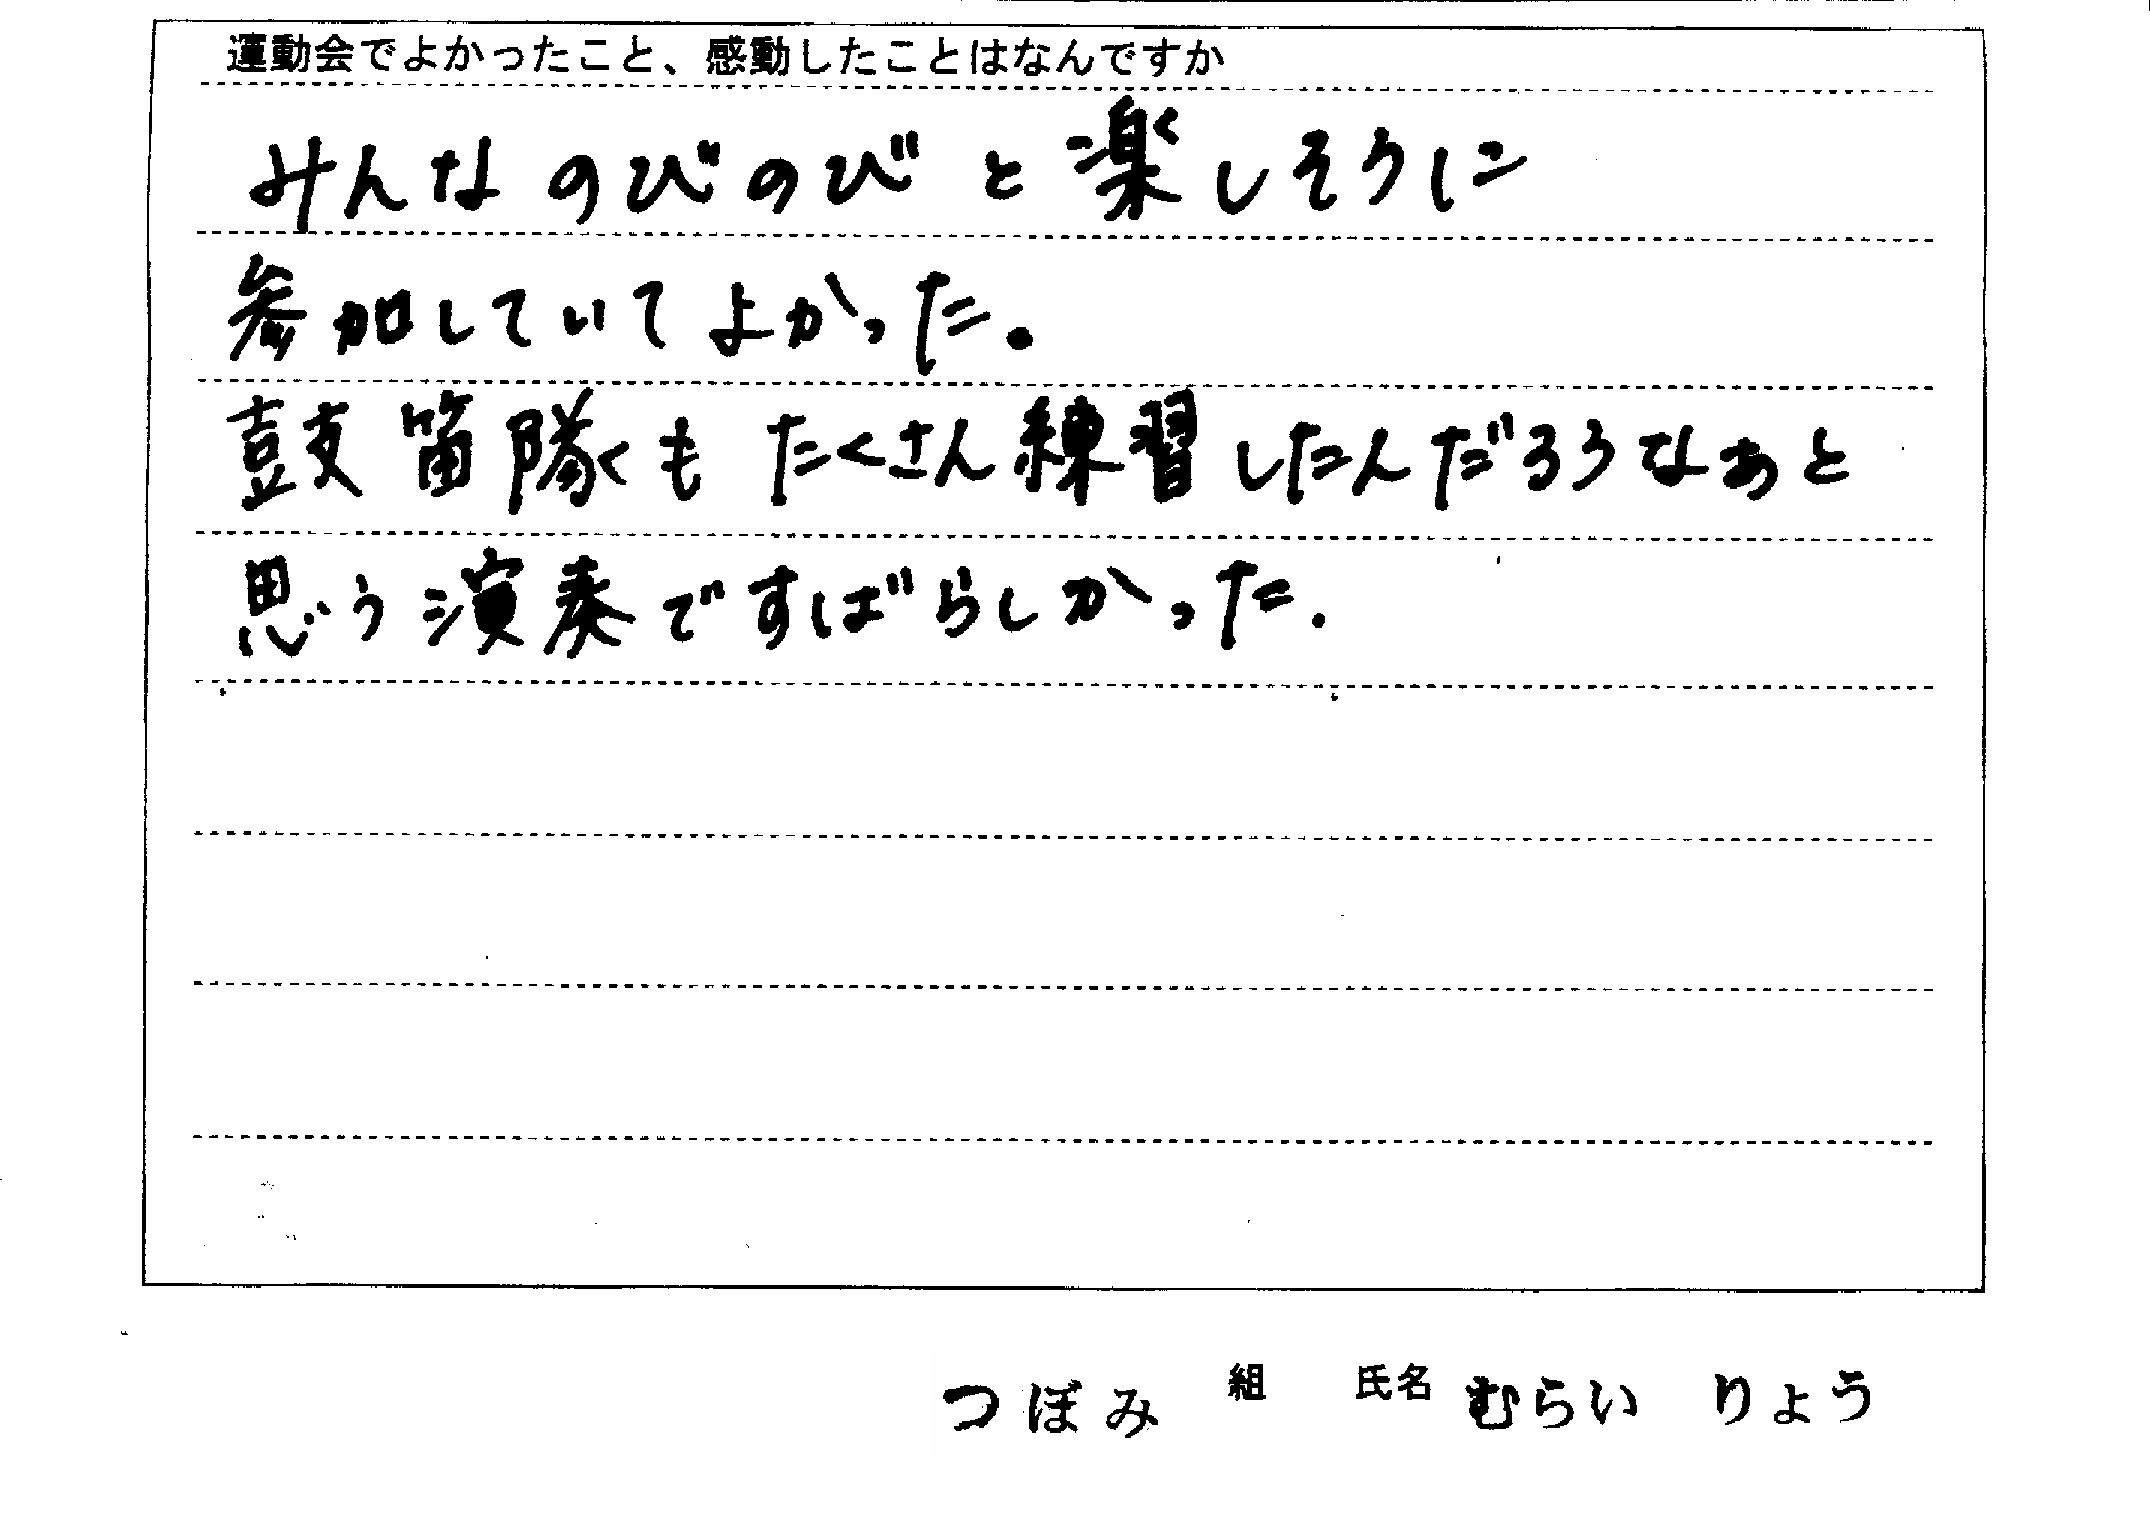 運動会でよかったこと、感動したことはなんですか
みんなのびのびと楽しそうに
参加していてよかった。
鼓笛隊もたくさん練習したんだろうなぁと
思う演奏ですばらしかった.
つぼみ 組 氏名 むらい りょう